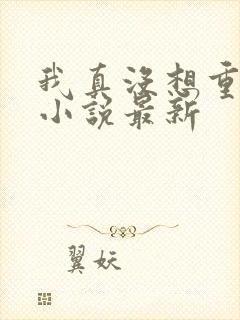 我真没想重
小说最新
翼妖